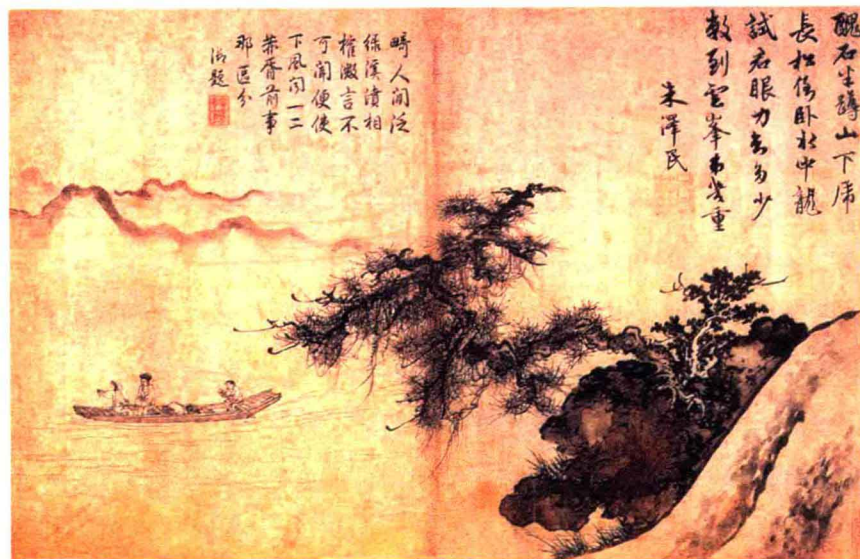 醜石半蹲山下虎
長松倒臥水中龍
試君眼力知多少
數到雲峯第幾重
朱澤民
畸人閒泛
綠溪濆相
榷微言不
可聞便使
下風問一二
華胥前事
那區分
御題